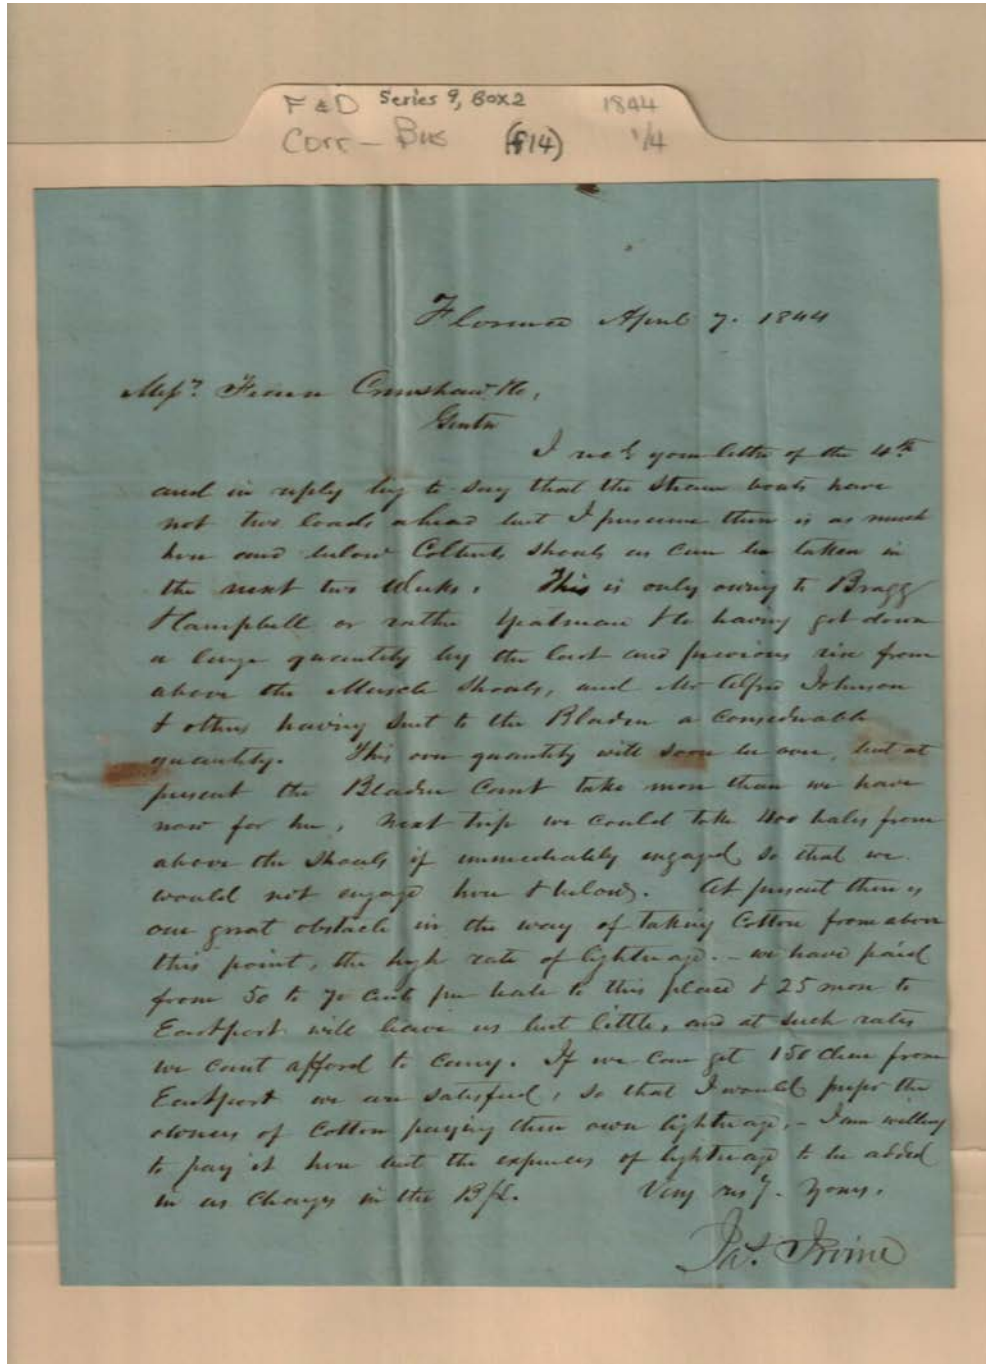 F & D Series 9, Box 2 1844
Corr - Bus (f14) 1/4
Florence April 7. 1844
Messrs. Fearn Crenshaw & Co,
Gentn
I recd. your letter of the 4th
and in reply beg to say that the Steam boats have
not two loads ahead but I presume there is as much
here and below Colberts Shoals as can be taken in
the next two weeks. This is only owing to Bragg
& Campbell or rather Yeatman & Co having got down
a large quantity by the last and previous rise from
above the Muscle Shoals, and Mr Alfred Johnson
& others having sent to the Bladen a considerable
quantity. This over quantity will soon be over, but at
present the Bladen Cant take more than we have
now for her, next trip we could take 400 bales from
above the Shoals if immediately engaged so that we
would not engage here & below. At present there is
one great obstacle in the way of taking Cotton from above
this point, the high rate of lighterage. - we have paid
from 50 to 70 cents per bale to this place & 25 more to
Eastport will leave us but little, and at such rates
we cant afford to carry. If we can get 150 clear from
Eastport we are satisfied, so that I would prefer the
owners of Cotton paying their own lighterage. - I am willing
to pay it here but the expences of lighterage to be added
in as charges in the B/L. Very resy. yours,
Jas. Irvine